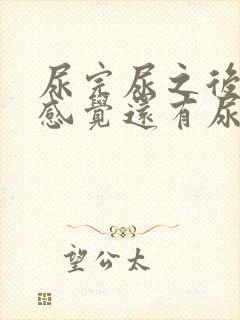 尿完尿之後
感覺還有尿
望公太